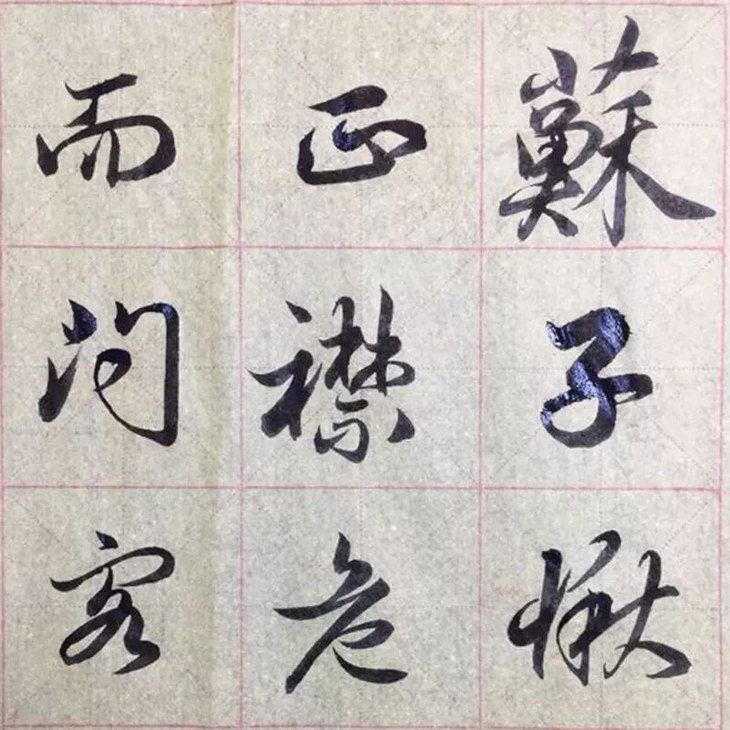 蘇子愀
正襟危
而問客